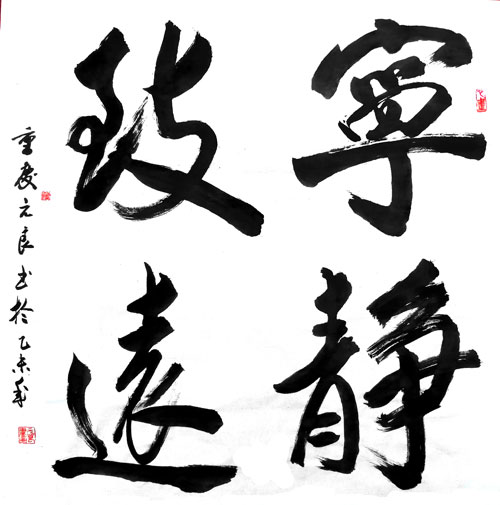 寧靜
致遠
重慶元良书於乙未年